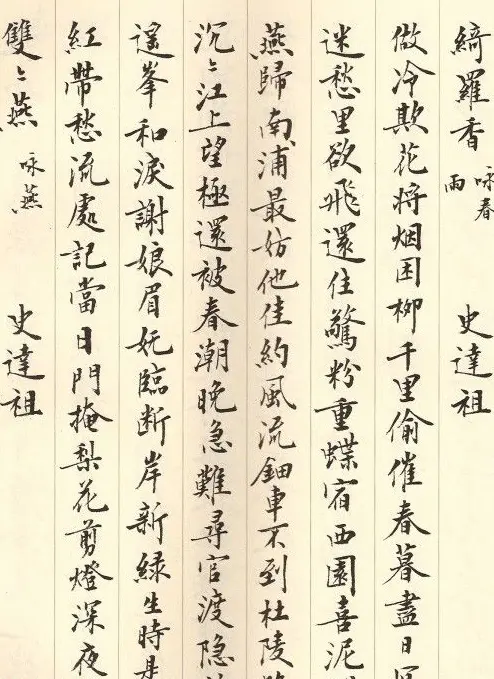 綺羅香 咏春雨 史達祖
做冷欺花将烟困柳千里偷催春暮盡日
迷愁里欲飛還住驚粉重蝶宿西園喜泥
燕歸南浦最妨他佳約風流鈿車不到杜陵
沉〻江上望極還被春潮晚急難尋官渡隐
遥峯和淚謝娘眉妩臨断岸新緑生時是
紅帶愁流處記當日門掩梨花剪燈深夜
雙〻燕 咏燕 史達祖